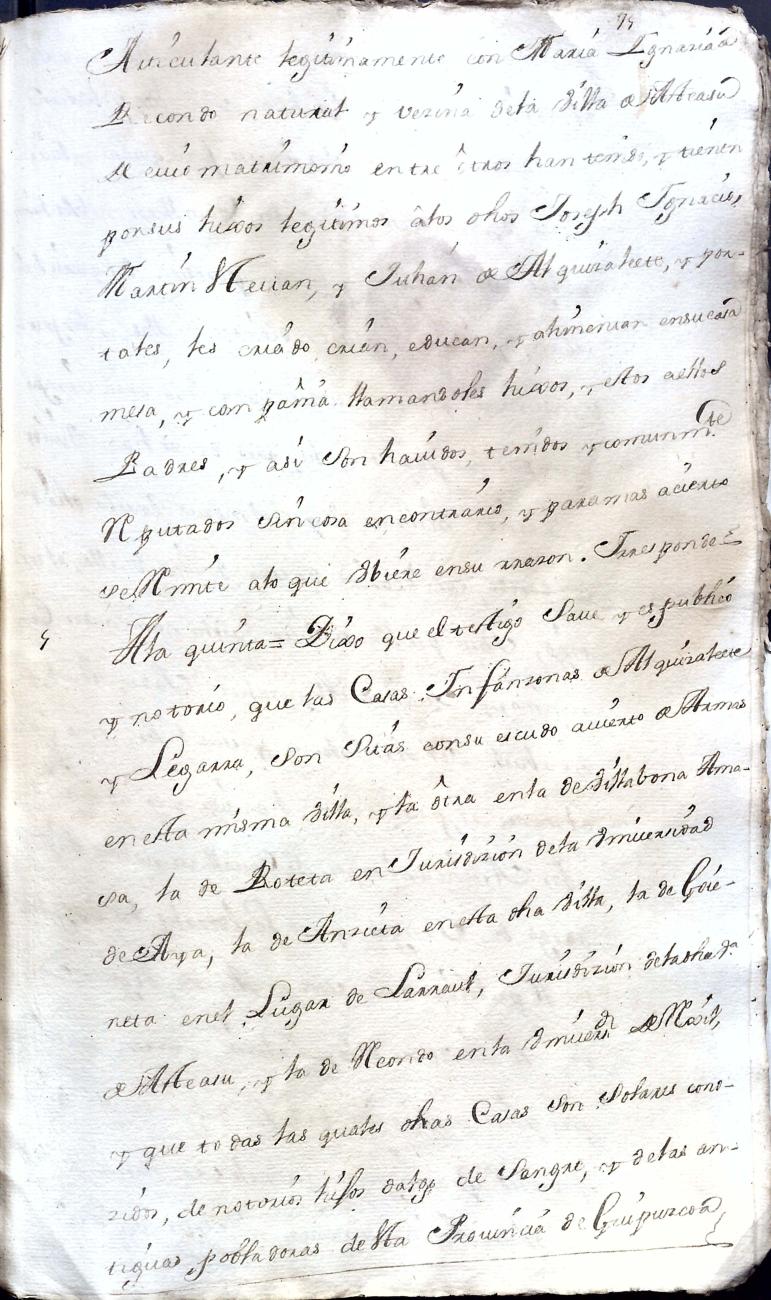 74
Articulante legitimamente con Maria Ignacia de
Recondo natural y vezina de la Villa de Asteasu
de cuio matrimonio entre otros han tenido, y tienen
por sus hixos legitimos â los dhos Joseph Ignacio,
Martin Steuan, y Julian de Alquizalete, y por-
tales, les criado, crian, educan, y alimentan en su casa
mesa, y compañia llamandoles hixos, y estos a ellos
Padres, y asi son hauidos, tenidos y comunmte
Reputados sin cosa en contrario, y para mas acierto
se Remite alo que Ubiere en su rrazon. Y rresponde =
5 A la quinta = Dixo que el testigo Saue y es publico
y notorio, que las Casas Infanzonas de Alquizalete
y Legarra, son Sitas con su escudo auierto de Armas
en esta misma Villa, y la ôtra en la de Villabona Ama-
sa, la de Roteta en Jurisdizion de la Vniuersidad
de Aya, la de Anzieta en esta dha Villa, la de Goie-
neta en el Lugar de Larraul, Jurisdizion de la dha Va
de Asteasu, y la de Recondo en la Vniuersd de Rexil,
y que todas las quales dhas Casas son Solares cono-
zidos, de notorios hijos dalgo de Sangre, y de las an-
tiguas pobladoras de esta Prouincia de Guipuzcoa